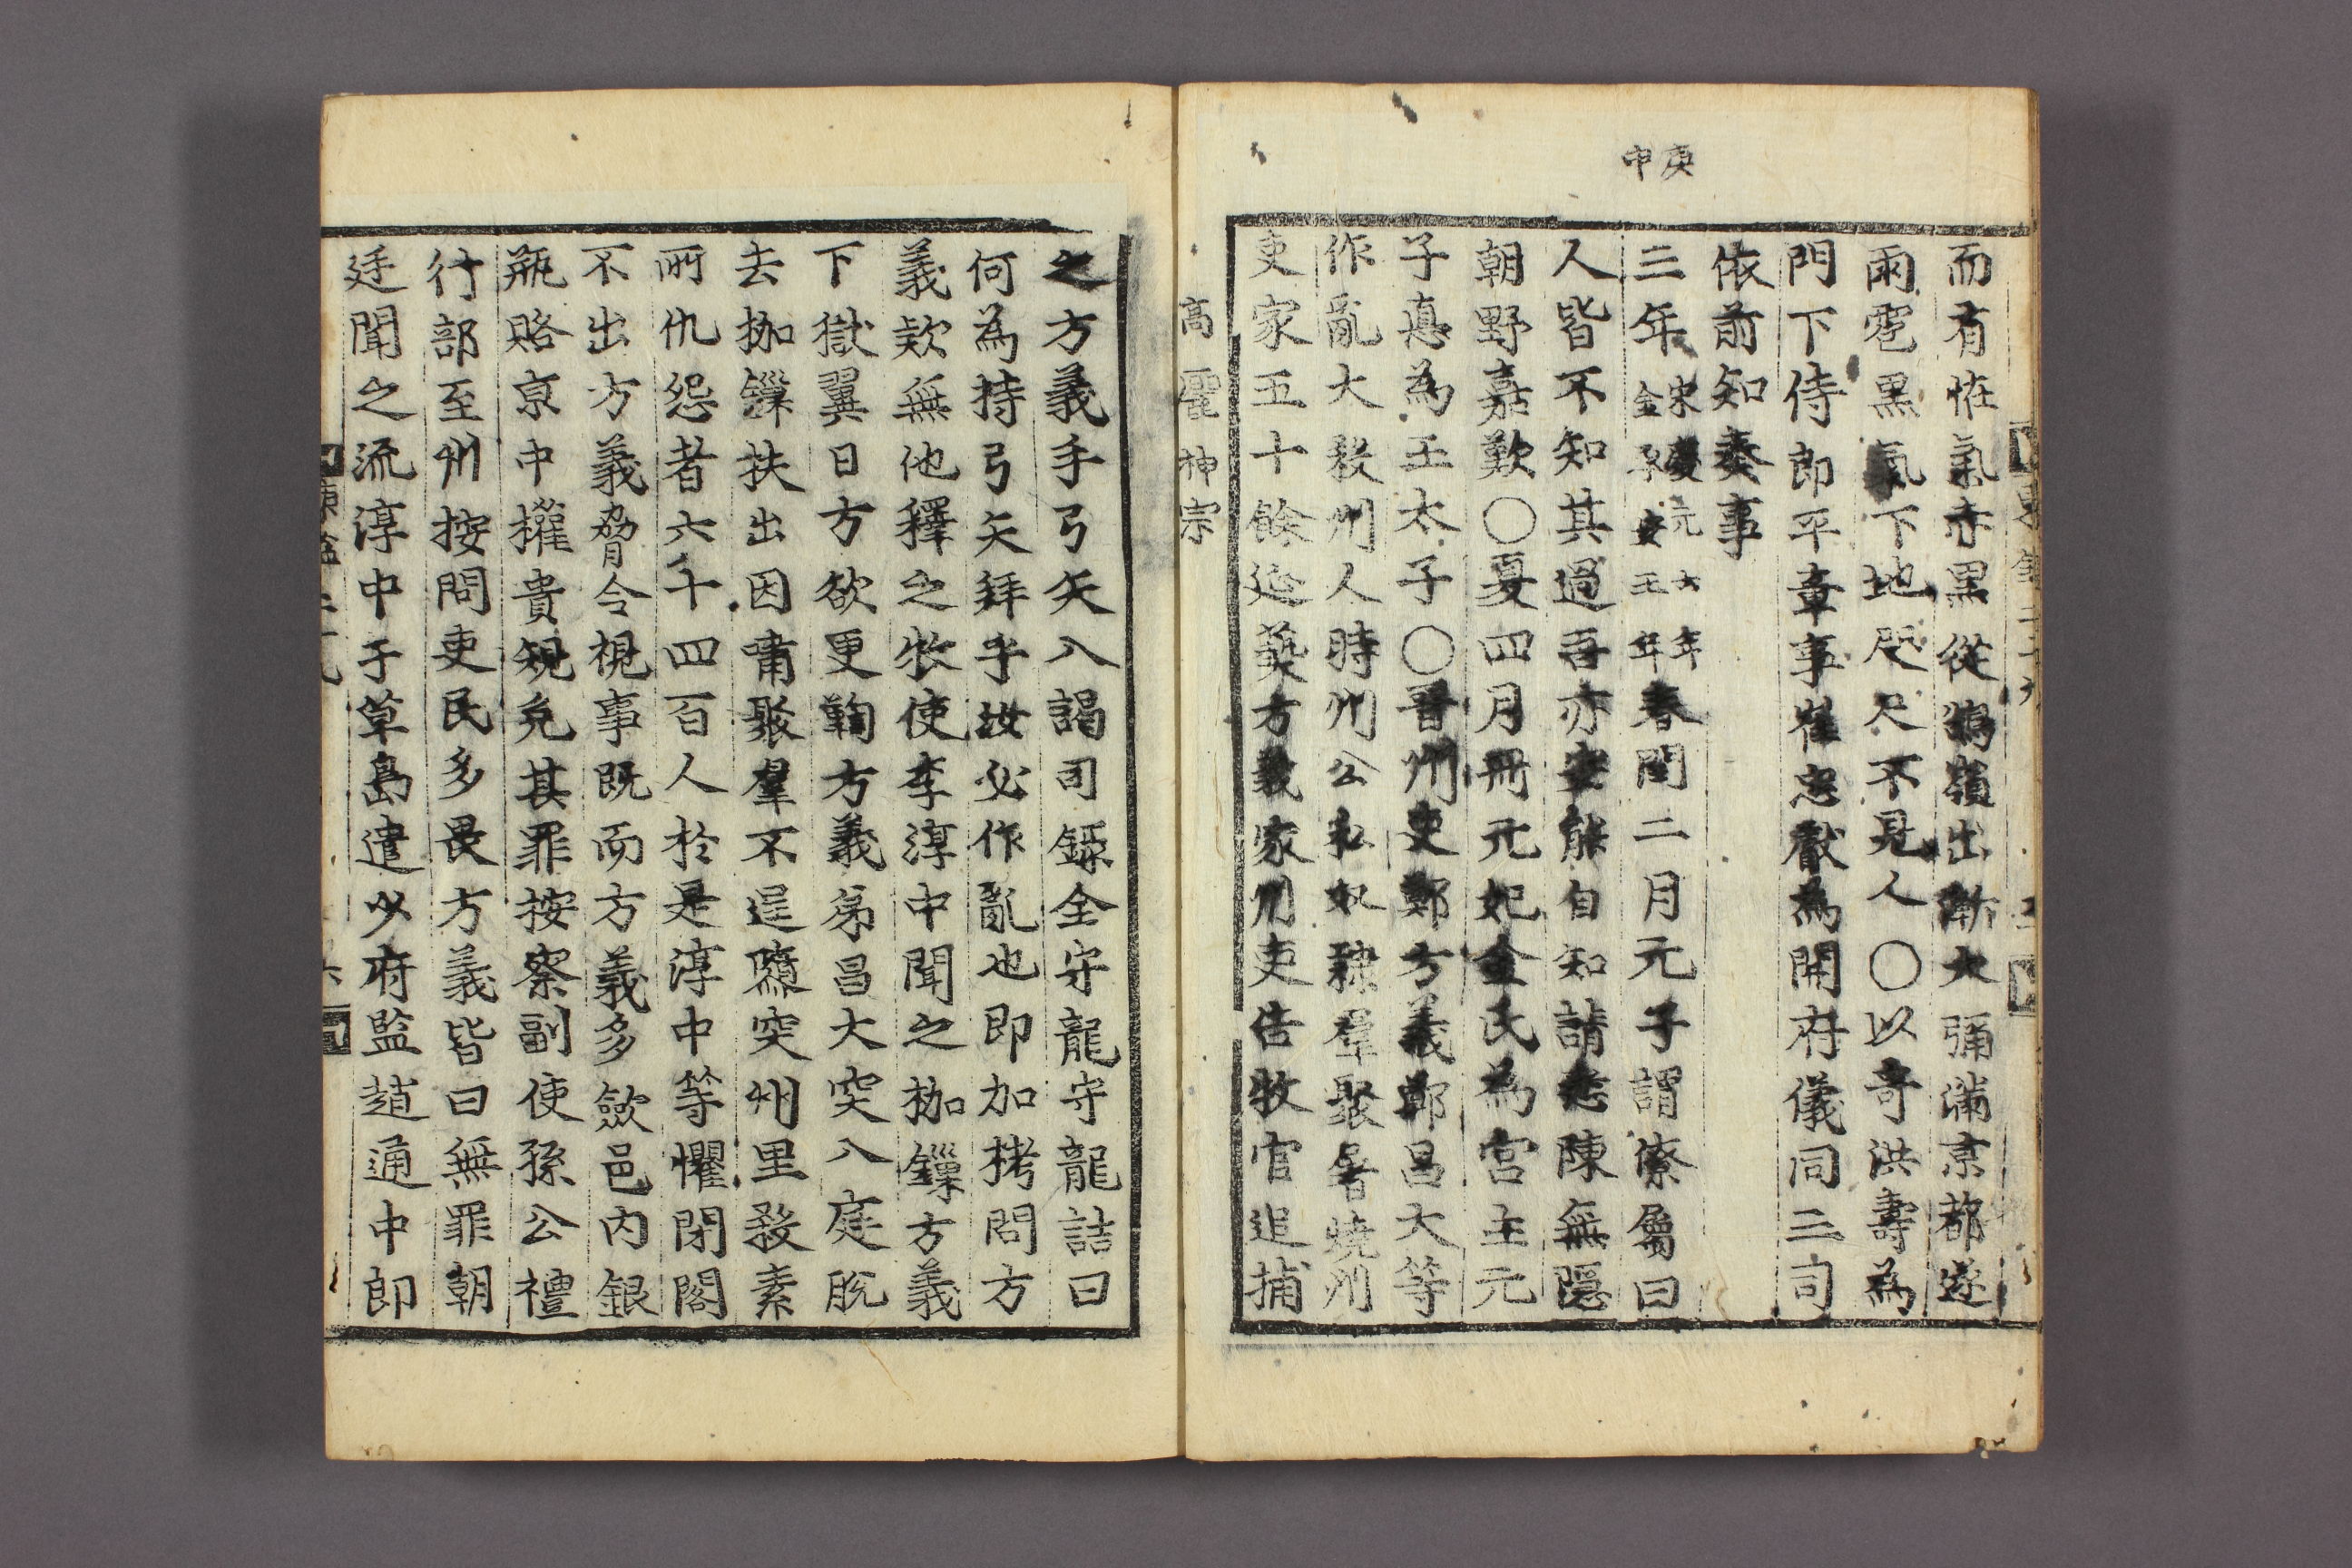 庚申
而有恠氣亦黑從鵠嶺出漸大弥滿京都遂
雨雹黑氣下地咫尺不見人○以奇洪壽爲
門下侍郎平章事崔忠獻爲開府儀同三司
依前知奏事
三年宋慶元六年金承安五年春閏二月元子謂僚屬曰
人皆不知其過吾亦安能自知請悉陳無隱
朝野嘉歎○夏四月冊元妃金氏爲宮主元
子悳爲王太子○晋州吏鄭方義鄭昌大等
作亂大殺州人時州公私奴隷羣聚屠燒州
吏家五十餘延爇方義家州吏告牧官追捕
高麗神宗
之方義手弓矢入謁司錄全守龍守龍詰曰
何爲持弓矢拜乎汝必作亂也即加栲問方
義欵無他釋之牧使李淳中聞之枷鏁方義
下獄翼日方欲更鞫方義弟昌大突入庭脫
去枷鏁扶出因嘯聚羣不逞隳突州里殺素
所仇怨者六千四百人於是淳中等懼閉閤
不出方義脅令視事旣而方義多歛邑內銀
甁賂京中權貴規免其罪按察副使孫公禮
行部至州按問吏民多畏方義皆曰無罪朝
廷聞之流淳中于草島遣少府監趙通中郎